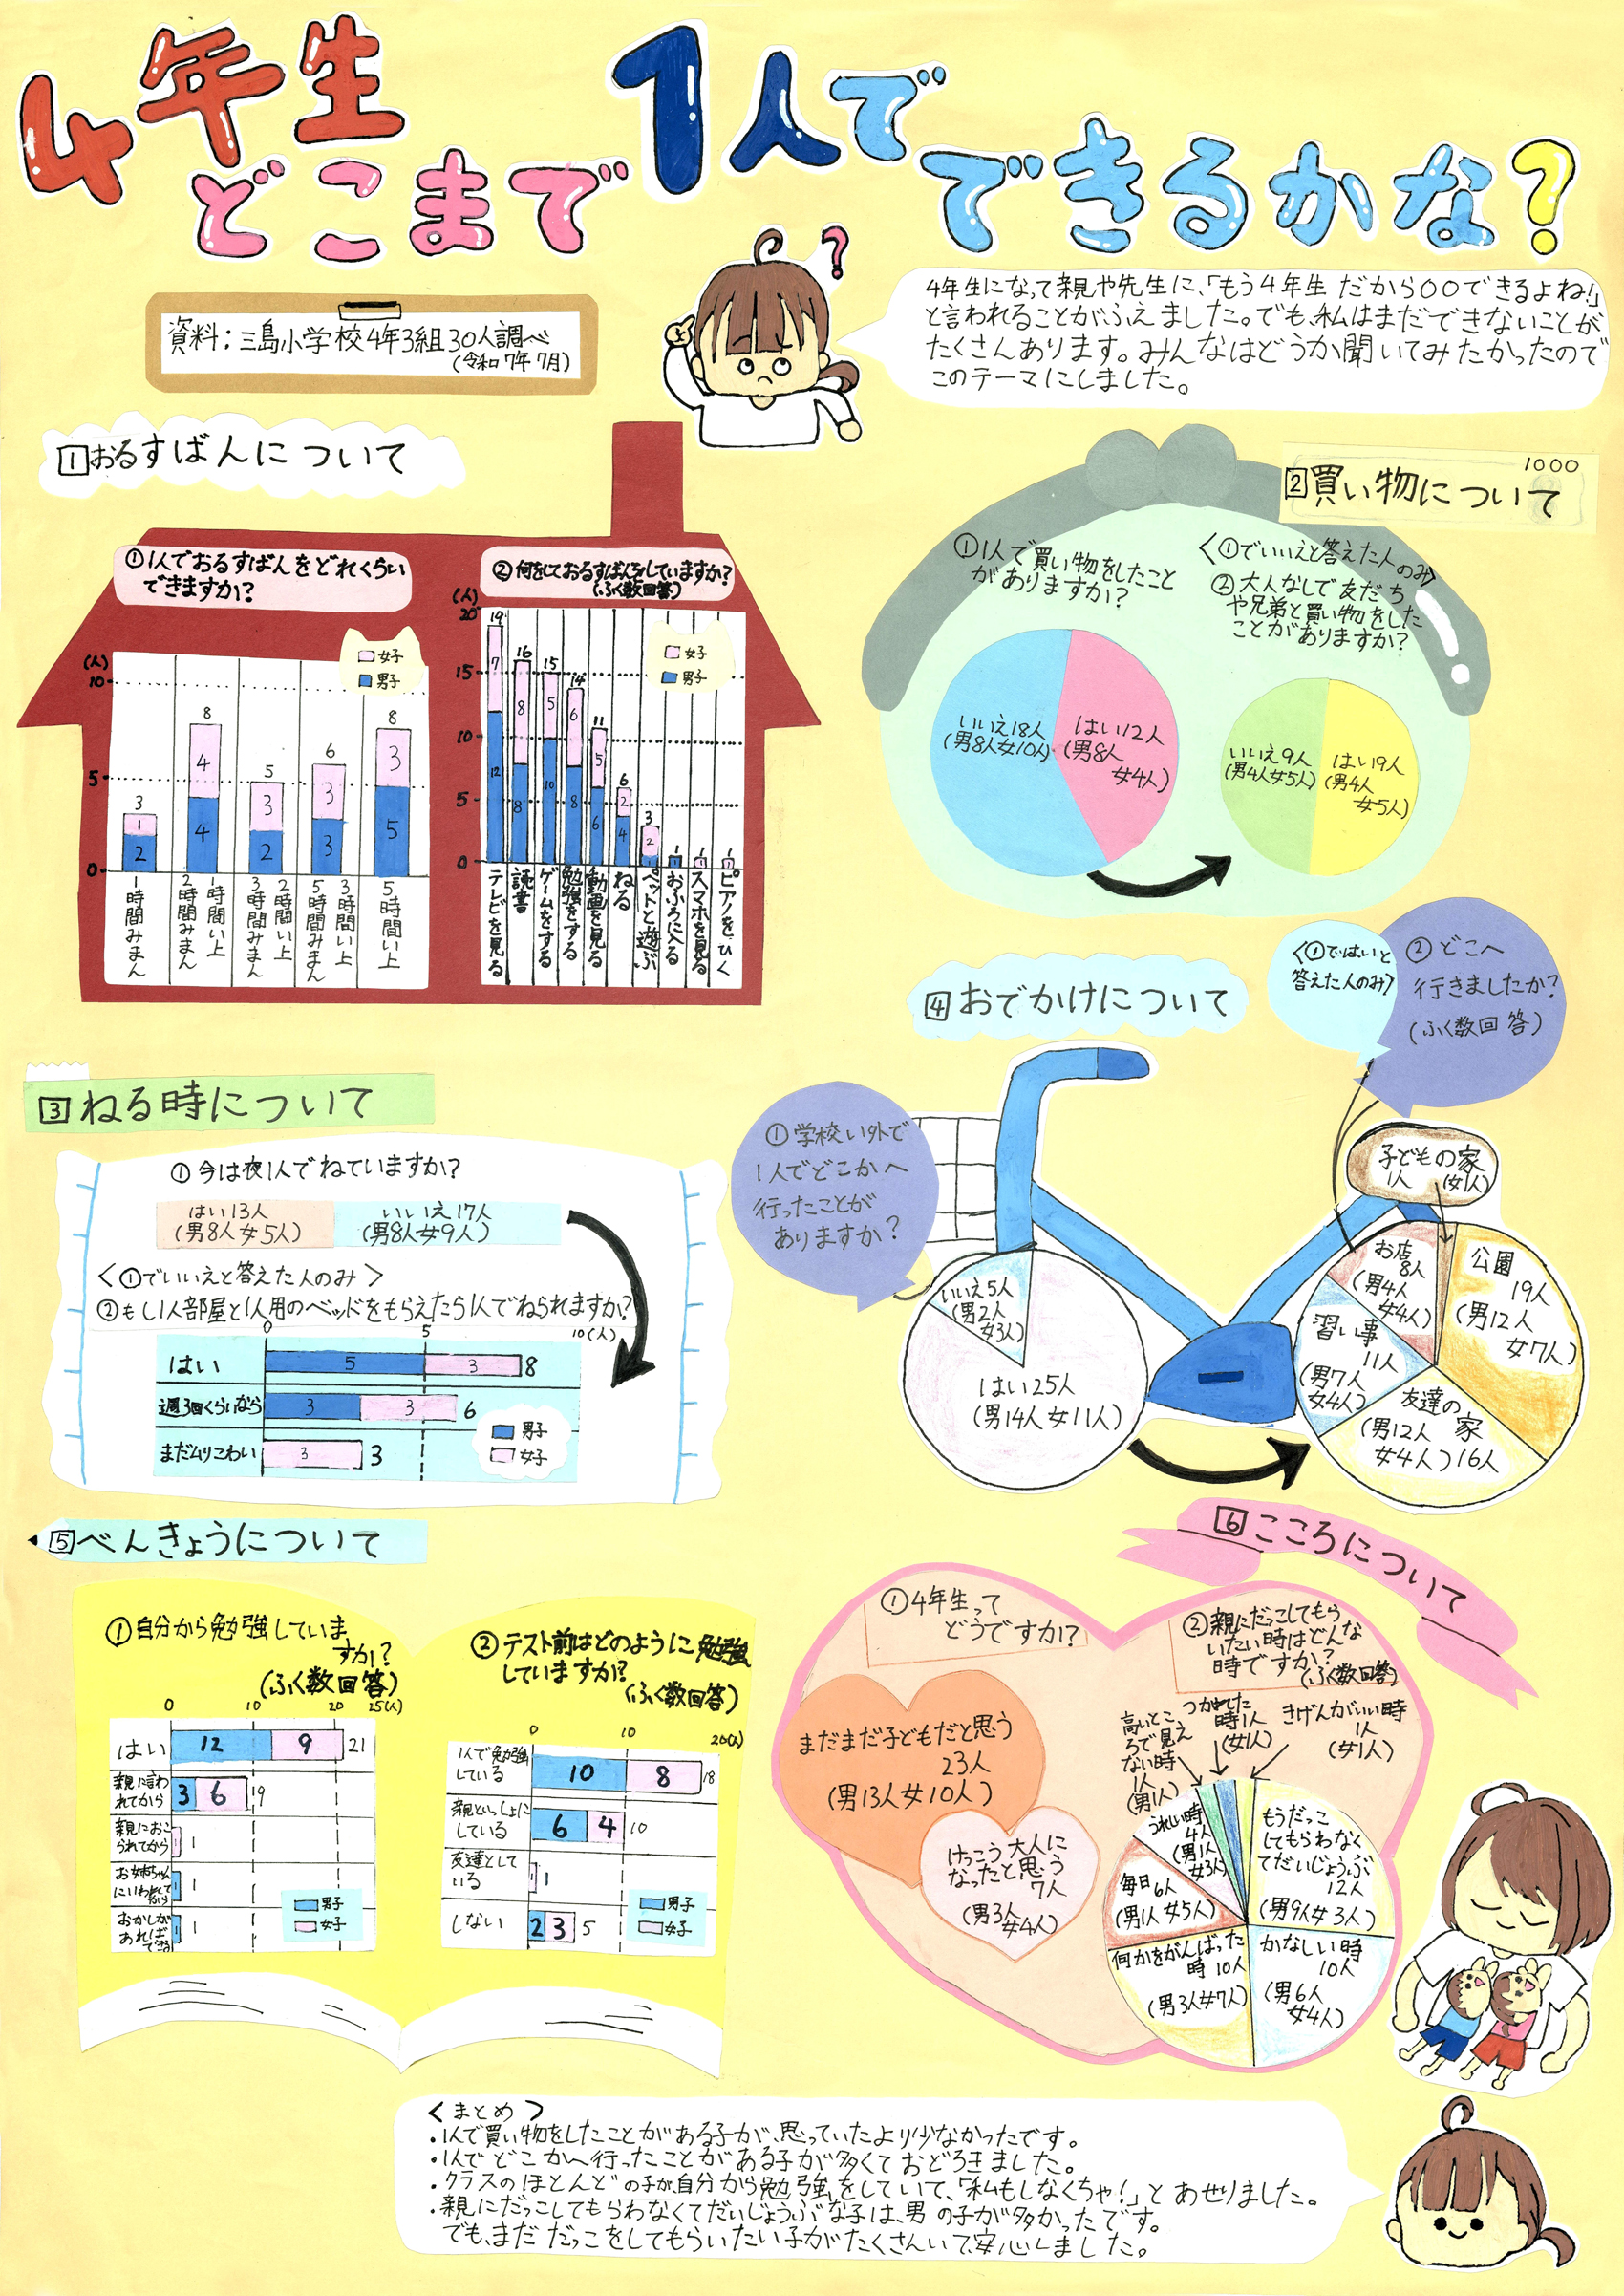 4年生
どこまで
1人で
できるかな?
資料：三島小学校4年3組30人調べ
(令和7年7月)
?
4年生になって親や先生に、「もう4年生だから〇〇できるよね!」
と言われることがふえました。でも、私はまだできないことが、
たくさんあります。みんなはどうか聞いてみたかったので
このテーマにしました。
1 おるすばんについて
①1人でおるすばんをどれくらい
できますか?
(人)
10
5
0
女子
男子
3
1
2
8
4
4
5
3
2
6
3
3
8
3
5
1時間みまん
1時間い上
2時間みまん
2時間い上
3時間みまん
3時間い上
5時間みまん
5時間い上
②何をしておるすばんをしていますか?
(ふく数回答)
(人)
20
15
10
5
0
女子
男子
19
7
12
16
8
8
15
5
10
14
6
8
11
5
6
6
2
4
3
2
1
1
1
1
1
テレビを見る
読書
ゲームをする
勉強をする
動画を見る
ねる
ペットと遊ぶ
おふろに入る
スマホを見る
ピアノをひく
1000
2 買い物について
①1人で買い物をしたこと
がありますか?
いいえ18人
(男8人女10人)
はい12人
(男8人
女4人)
〈①でいいえと答えた人のみ〉
②大人なしで友だち
や兄弟と買い物をした
ことがありますか?
いいえ9人
(男4人女5人)
はい9人
(男4人
女5人)
3 ねる時について
①今は夜1人でねていますか?
はい13人
(男8人女5人)
いいえ17人
(男8人女9人)
〈①でいいえと答えた人のみ〉
②もし1人部屋と1人用のベッドをもらえたら1人でねられますか?
0
5
10(人)
はい
5
3
8
週3回くらいなら
3
3
6
まだムリこわい
3
3
男子
女子
4 おでかけについて
①学校い外で
1人でどこかへ
行ったことが
ありますか?
いいえ5人
(男2人
女3人)
はい25人
(男14人女11人)
〈①ではいと
答えた人のみ〉
②どこへ
行きましたか?
(ふく数回答)
子どもの家
1人
(女1人)
お店
8人
(男4人
女4人)
公園
19人
(男12人
女7人)
習い事
11人
(男7人
女4人)
友達の
家
(男12人
女4人)16人
5 べんきょうについて
①自分から勉強していま
すか?
(ふく数回答)
0
10
20
25(人)
はい
12
9
21
親に言わ
れてから
3
6
19
親におこ
られてから
1
1
お姉ちゃん
にいわれて
から
1
1
おかしが
あれば
できる
1
1
男子
女子
②テスト前はどのように勉強
していますか?
(ふく数回答)
0
10
20(人)
1人で勉強
している
10
8
18
親といっしょに
している
6
4
10
友達として
いる
1
1
しない
2
3
5
男子
女子
6 こころについて
①4年生って
どうですか?
まだまだ子どもだと思う
23人
(男13人女10人)
けっこう大人に
なったと思う
7人
(男3人
女4人)
②親にだっこしてもら
いたい時はどんな
時ですか?
(ふく数回答)
高いとこ
ろで見え
ない時
1人
(男1人)
つかれた
時1人
(女1人)
きげんがいい時
1人
(女1人)
うれしい時
4人
(男1人
女3人)
もうだっこ
してもらわなく
てだいじょうぶ
12人
(男9人女3人)
毎日6人
(男1人女5人)
何かをがんばった
時10人
(男3人女7人)
かなしい時
10人
(男6人
女4人)
〈まとめ〉
・1人で買い物をしたことがある子が、思っていたより少なかったです。
・1人でどこかへ行ったことがある子が多くておどろきました。
・クラスのほとんどの子が、自分から勉強をしていて、「私もしなくちゃ!」とあせりました。
・親にだっこしてもらわなくてだいじょうぶな子は、男の子が多かったです。
でも、まだだっこをしてもらいたい子がたくさんいて、安心しました。